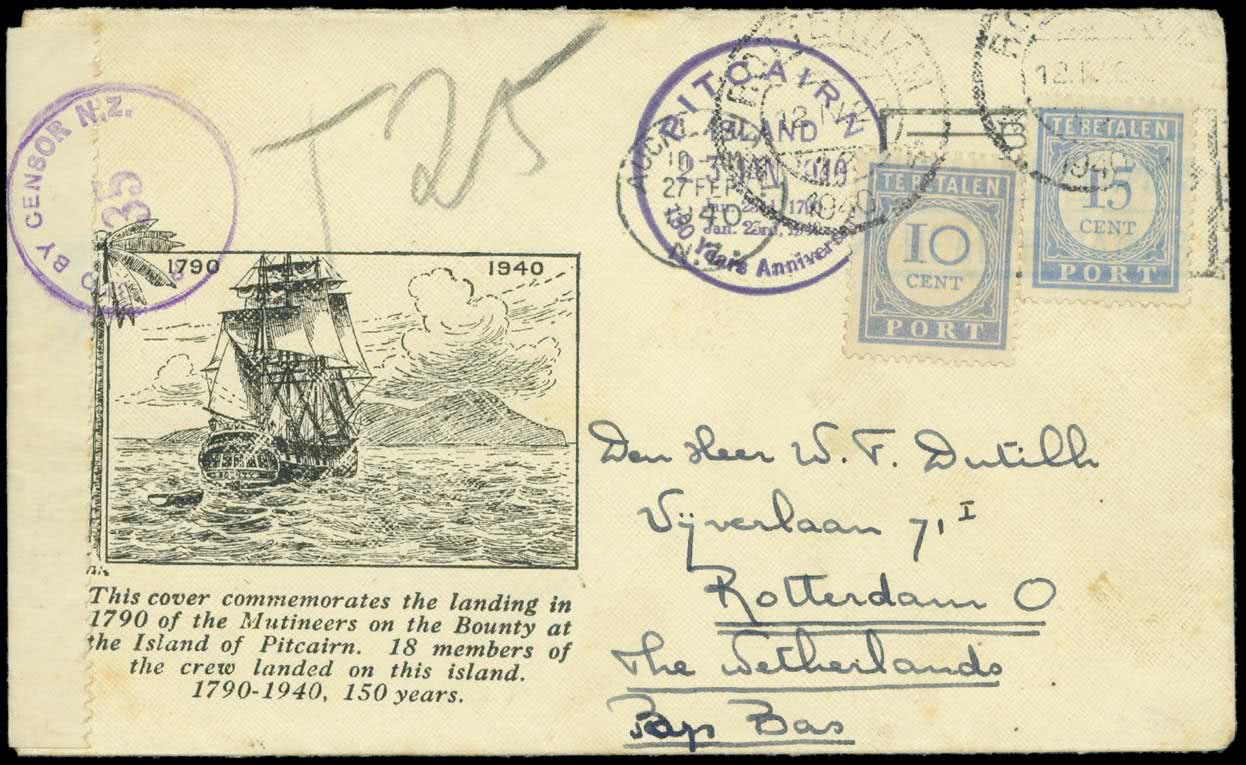 T 25
BY CENSOR N.Z.
35
PITCAIRN
ISLAND
Jan. 23rd,
Years
AUCK
27 FEB
1940
N.Z.
12.IV
1940
12.IV
1940
TE BETALEN
10
CENT
PORT
TE BETALEN
15
CENT
PORT
1790 1940
This cover commemorates the landing in
1790 of the Mutineers on the Bounty at
the Island of Pitcairn. 18 members of
the crew landed on this island.
1790-1940, 150 years.
Den Heer W. F. Dutilh
Vijverlaan 71 I
Rotterdam O
The Netherlands
Pays Bas